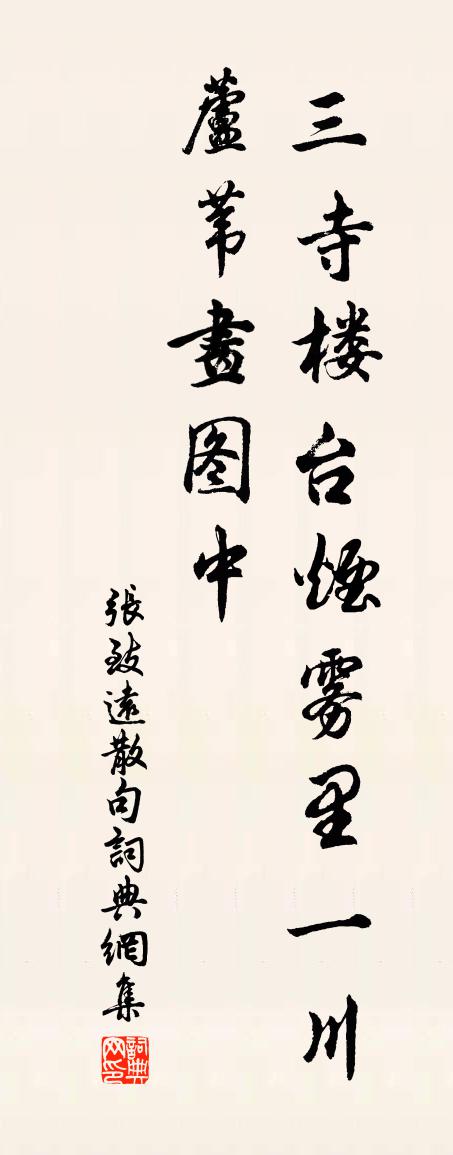 三寺楼台煙雾里一川
蘆苇畫图中
張致遠散句詞典網集
詞典网印